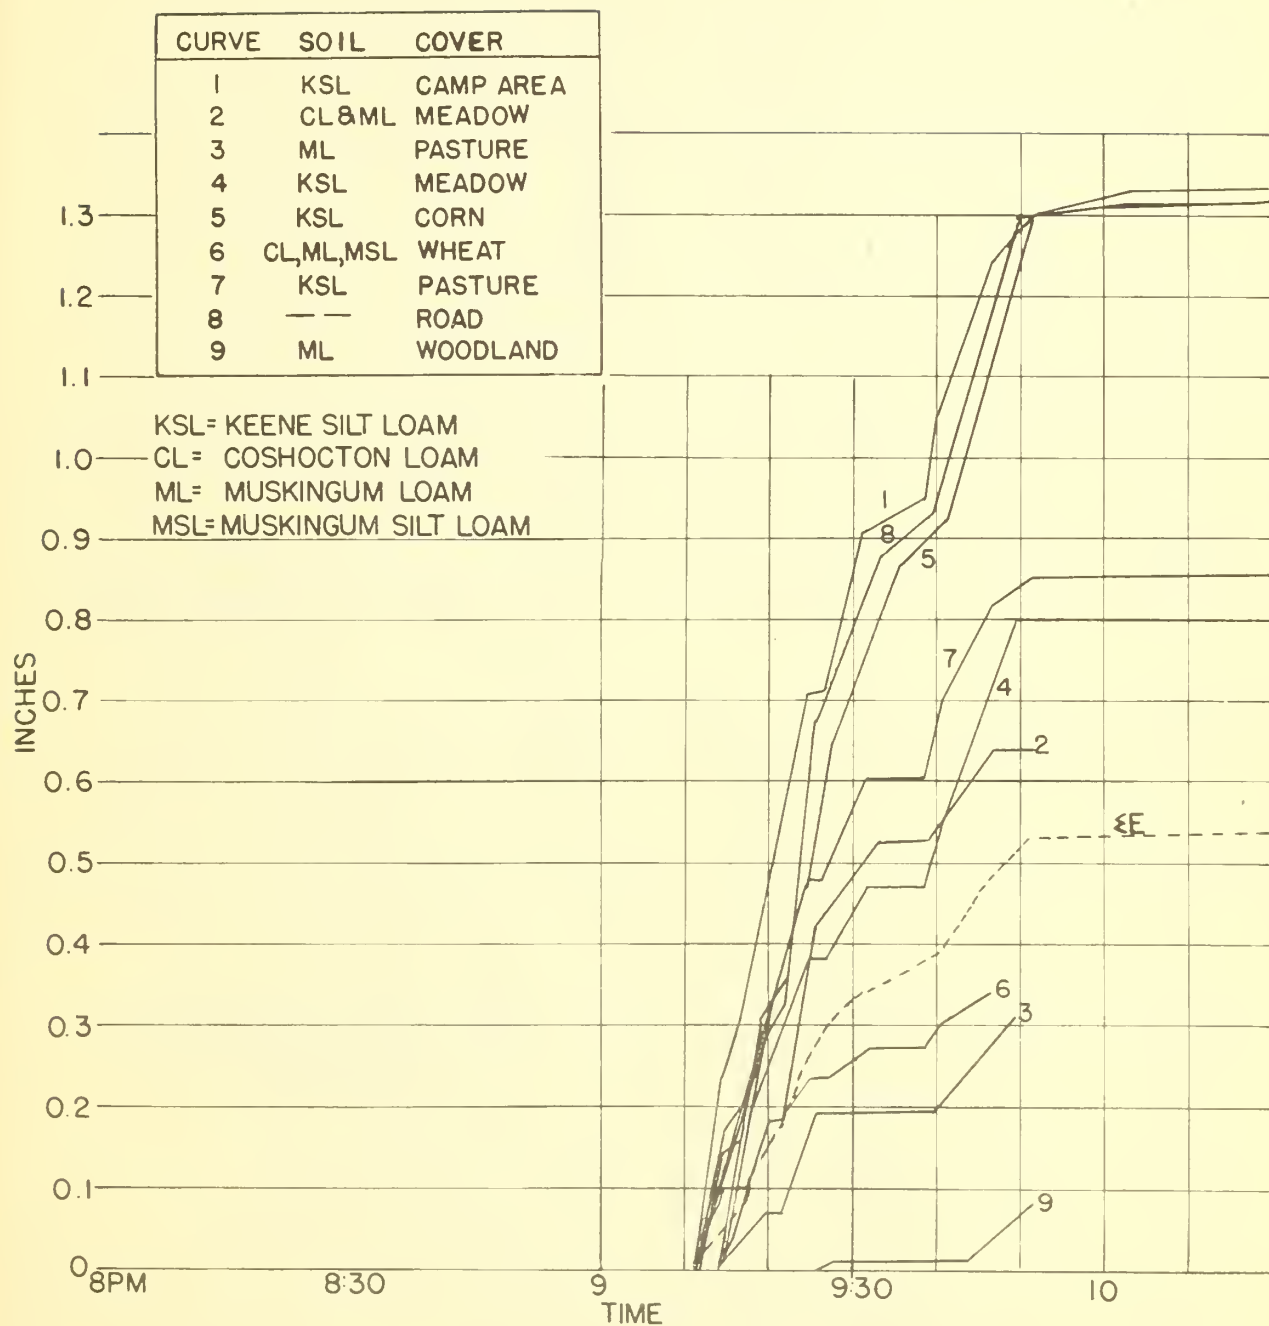 CURVE SOIL COVER
1 KSL CAMP AREA
2 CL&ML MEADOW
3 ML PASTURE
4 KSL MEADOW
5 KSL CORN
6 CL,ML,MSL WHEAT
7 KSL PASTURE
8 — — ROAD
9 ML WOODLAND
KSL= KEENE SILT LOAM
CL= COSHOCTON LOAM
ML= MUSKINGUM LOAM
MSL= MUSKINGUM SILT LOAM
1.3
1.2
1.1
1.0
0.9
0.8
0.7
0.6
0.5
0.4
0.3
0.2
0.1
0
INCHES
1
8
5
7
4
2
ΣE
6
3
9
8PM 8:30 9 9:30 10
TIME